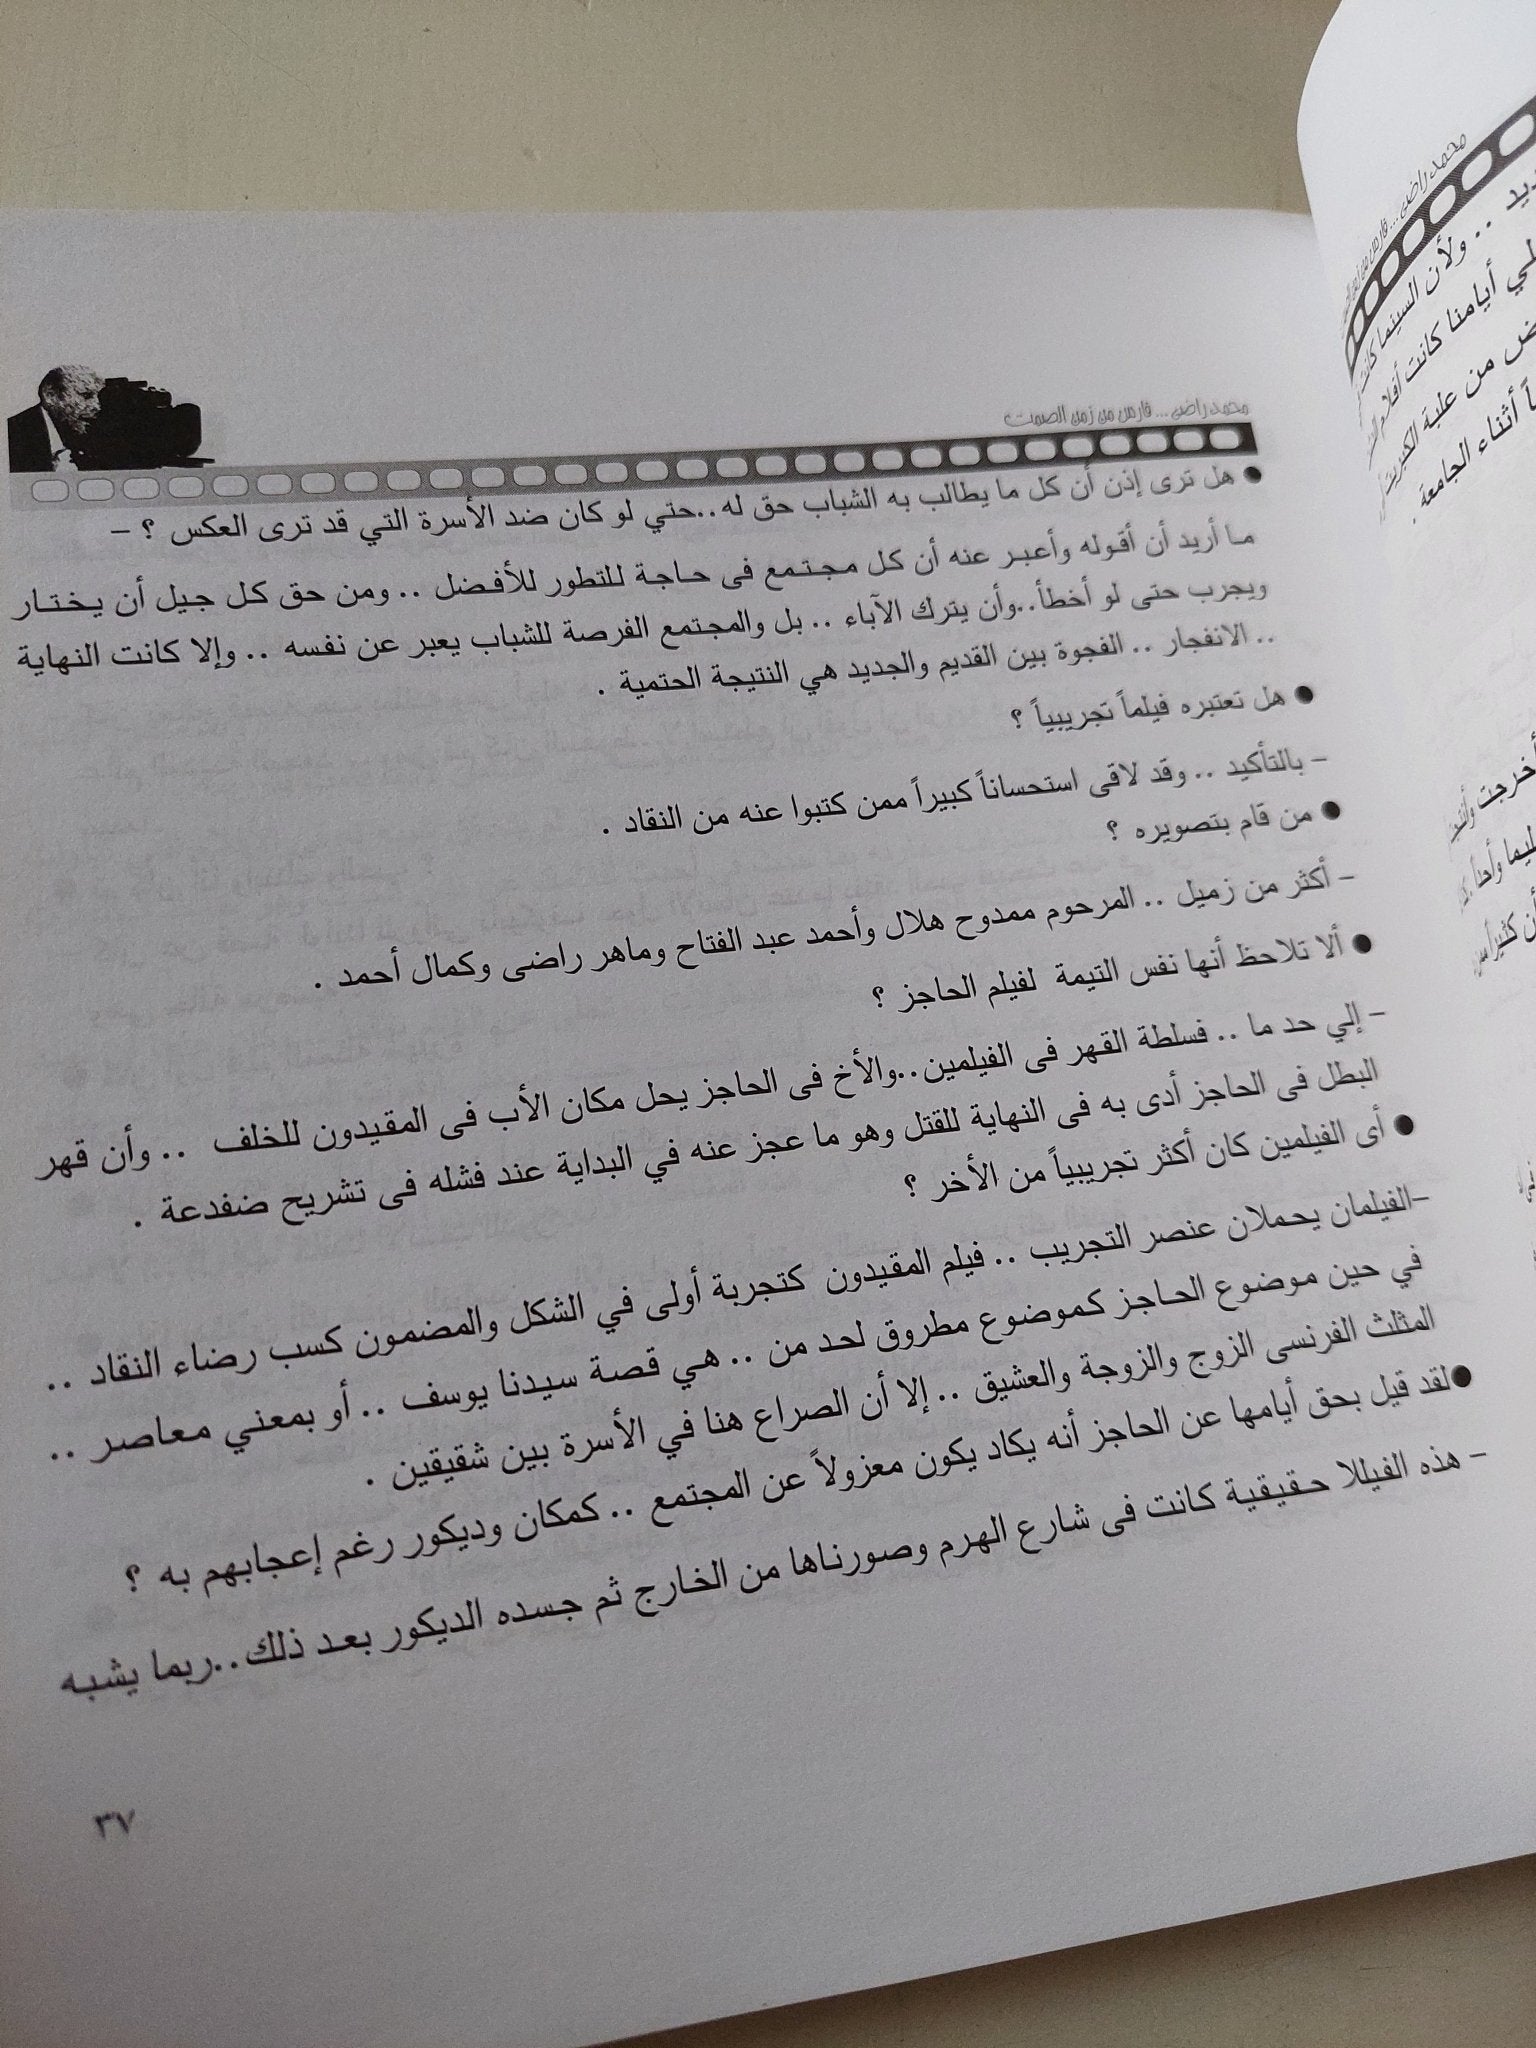 محمد راضى ... فارس من زمن الصمت
● هل ترى إذن أن كل ما يطالب به الشباب حق له..حتي لو كان ضد الأسرة التي قد ترى العكس ؟ –
ما أريد أن أقوله وأعبر عنه أن كل مجتمع فى حاجة للتطور للأفضل .. ومن حق كل جيل أن يختار
ويجرب حتى لو أخطأ..وأن يترك الآباء .. بل والمجتمع الفرصة للشباب يعبر عن نفسه .. وإلا كانت النهاية
.. الانفجار .. الفجوة بين القديم والجديد هي النتيجة الحتمية .
● هل تعتبره فيلماً تجريبياً ؟
– بالتأكيد .. وقد لاقى استحساناً كبيراً ممن كتبوا عنه من النقاد .
● من قام بتصويره ؟
– أكثر من زميل .. المرحوم ممدوح هلال وأحمد عبد الفتاح وماهر راضى وكمال أحمد .
● ألا تلاحظ أنها نفس التيمة لفيلم الحاجز ؟
– إلي حد ما .. فسلطة القهر فى الفيلمين..والأخ فى الحاجز يحل مكان الأب فى المقيدون للخلف .. وأن قهر
البطل فى الحاجز أدى به فى النهاية للقتل وهو ما عجز عنه في البداية عند فشله فى تشريح ضفدعة .
● أى الفيلمين كان أكثر تجريبياً من الأخر ؟
–الفيلمان يحملان عنصر التجريب .. فيلم المقيدون كتجربة أولى في الشكل والمضمون كسب رضاء النقاد ..
في حين موضوع الحاجز كموضوع مطروق لحد من .. هي قصة سيدنا يوسف .. أو بمعني معاصر ..
المثلث الفرنسى الزوج والزوجة والعشيق .. إلا أن الصراع هنا في الأسرة بين شقيقين .
●لقد قيل بحق أيامها عن الحاجز أنه يكاد يكون معزولاً عن المجتمع .. كمكان وديكور رغم إعجابهم به ؟
– هذه الفيللا حقيقية كانت فى شارع الهرم وصورناها من الخارج ثم جسده الديكور بعد ذلك..ربما يشبه
٣٧
محمد راضى ... فارس من
.. ولأن السينما كانت
أيامنا كانت أفلام
من علبة الكبريت
أثناء الجامعة .
أخرجت